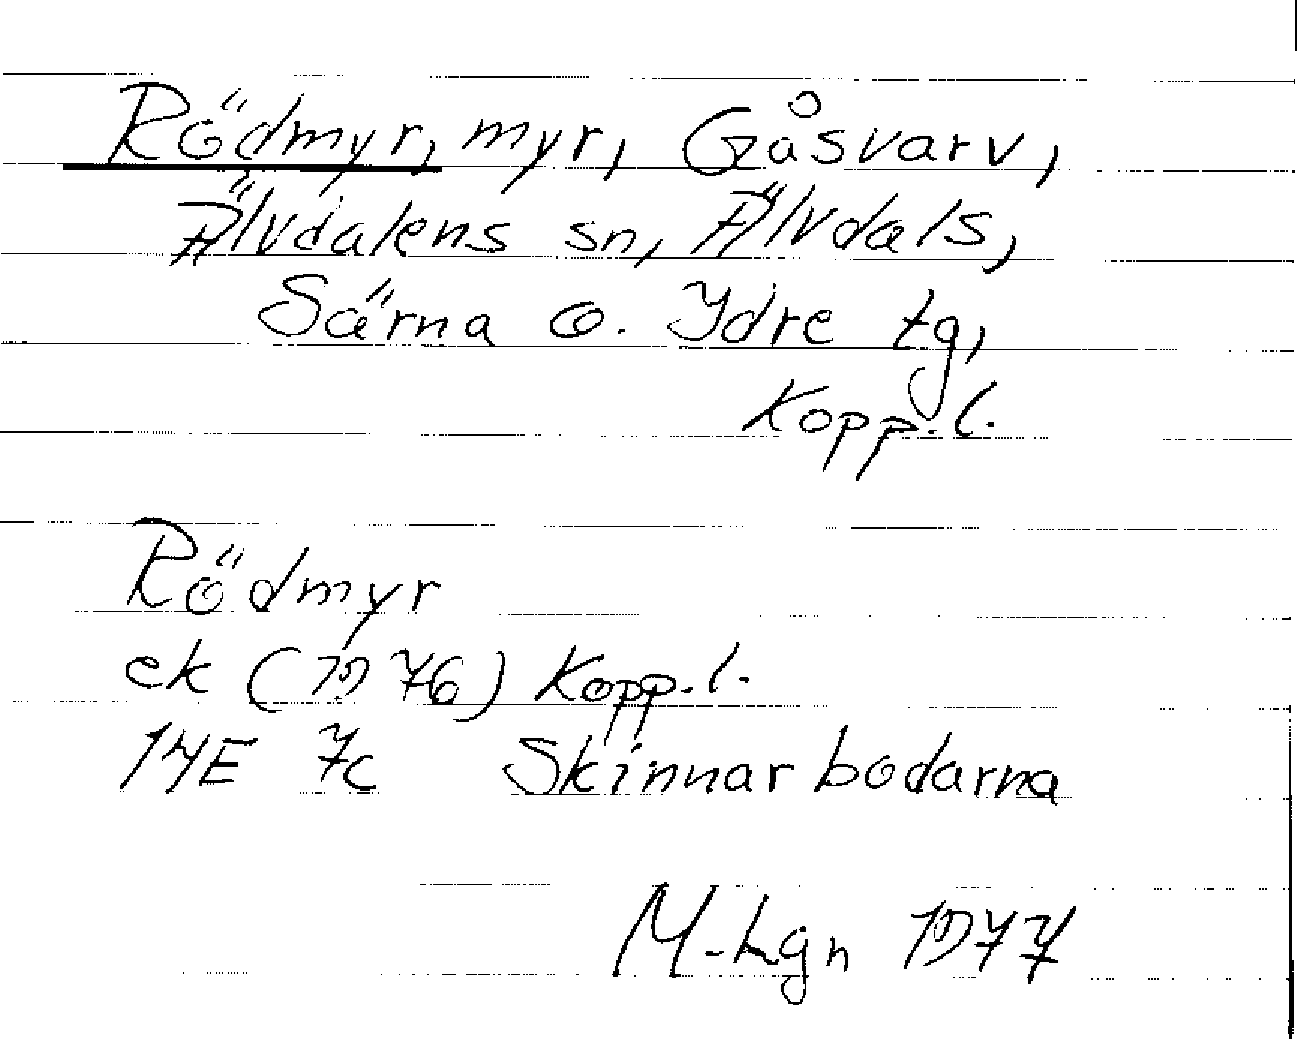 Rödmyr, myr, Gåsvarv,
Älvdalens sn, Älvdals,
Särna o. Idre tg,
Kopp.l.
Rödmyr
ek (1976) Kopp.l.
14E 7c Skinnarbodarna
M-Lgn 1977